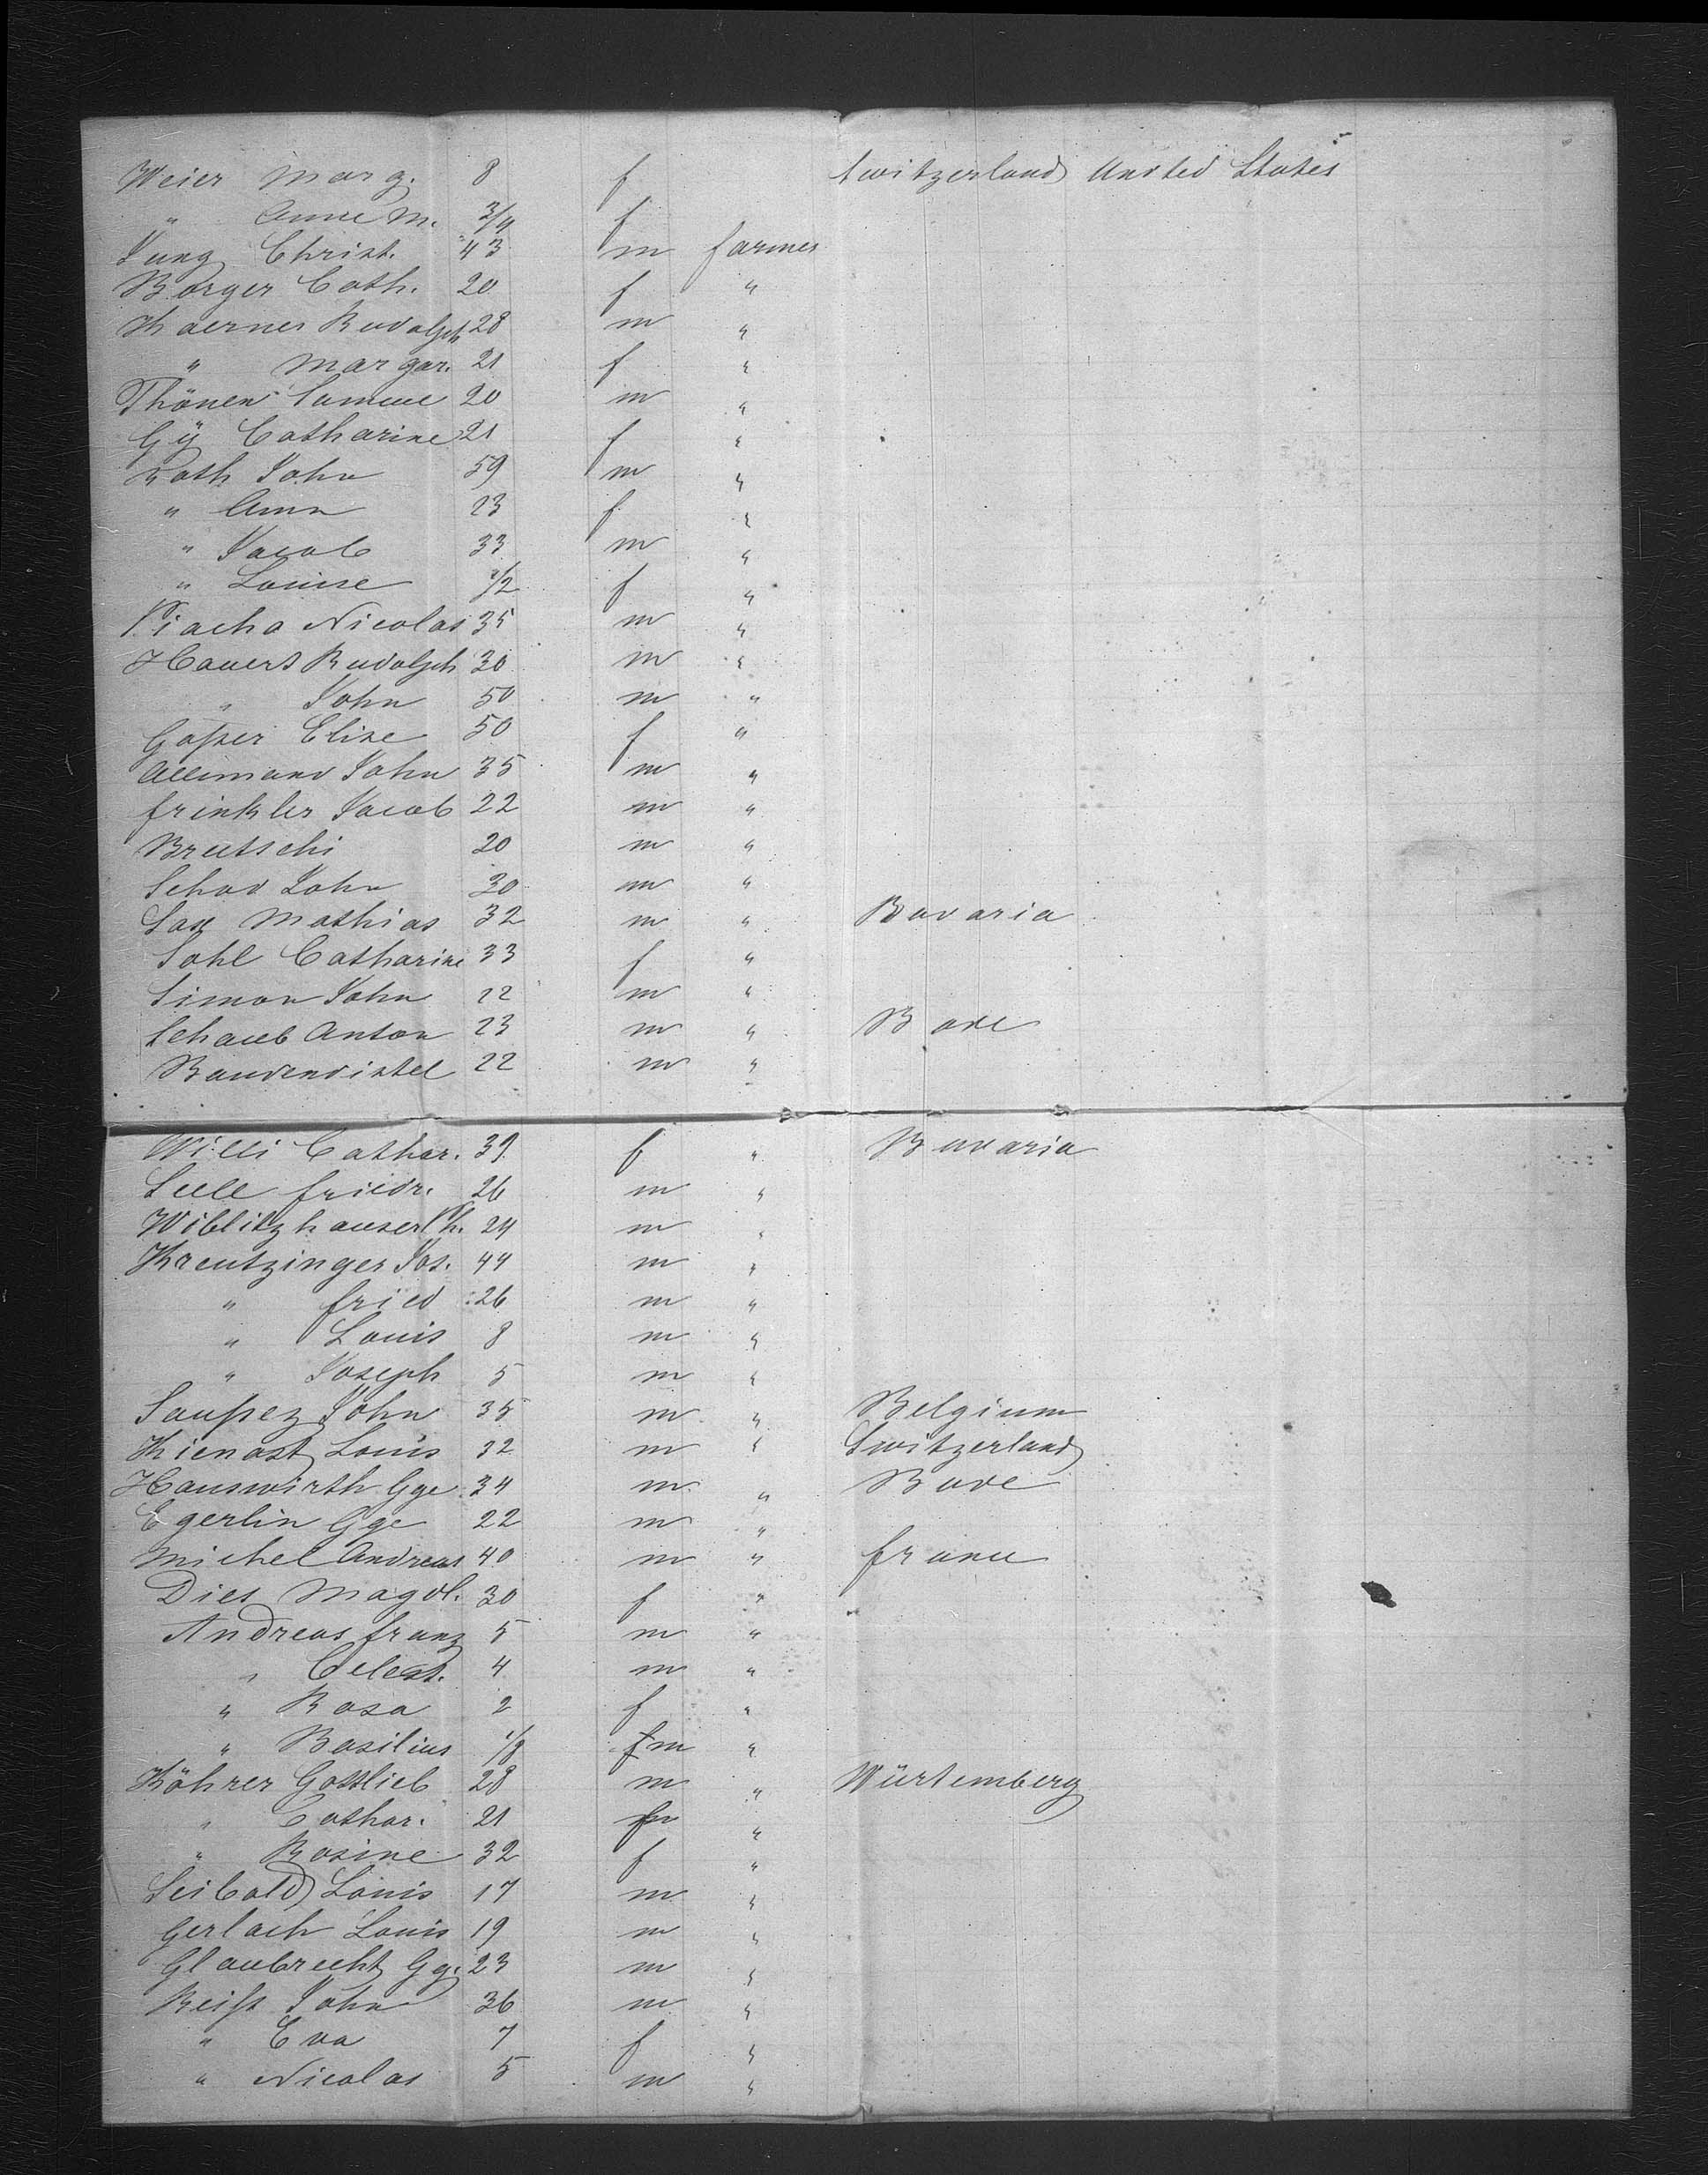 Weier Marg. 8 f Switzerland United States
" Anne M. 3/4 f
Jung Christ. 43 m farmer
Borger Cath. 20 f "
Kaerner Rudolph 28 m "
" Margar. 21 f "
Thönen Samuel 20 m "
Gÿ Catharine 21 f "
Roth John 59 m "
" Anna 23 f "
" Jacob 33 m "
" Louise 1/2 f "
Piacha Nicolas 35 m "
Hauert Rudolph 30 m "
" John 50 m "
Goßer Elise 50 f "
Allimand John 35 m "
Frinkler Jacob 22 m "
Brutschi 20 m "
Schad John 30 m "
Sax Mathias 32 m " Bavaria
Sohl Catharine 33 f "
Simon John 22 m "
Schaub Anton 23 m " Bade
Baudendistel 22 m "
Willi Cathar. 39 f " Bavaria
Seele Friedr. 26 m "
Wiblitzhauser Ch. 24 m "
Kreutzinger Jos. 44 m "
" Fried 26 m "
" Louis 8 m "
" Joseph 5 m "
Saußez John 35 m " Belgium
Kienast Louis 32 m " Switzerland
Hauswirth Gge 34 m " Bade
Egerlin Gge 22 m "
Michel Andreas 40 m " France
Dies Magdl. 30 f "
Andreas Franz 5 m "
" Celest. 4 m "
" Rosa 2 f "
" Basilius 1/8 m "
Köhrer Gottlieb 28 m " Würtemberg
" Cathar. 21 f "
" Rosine 32 f "
Seibold Louis 17 m "
Gerlach Louis 19 m "
Glaubrecht Gg. 23 m "
Reiß John 36 m "
" Eva 7 f "
" Nicolas 5 m "